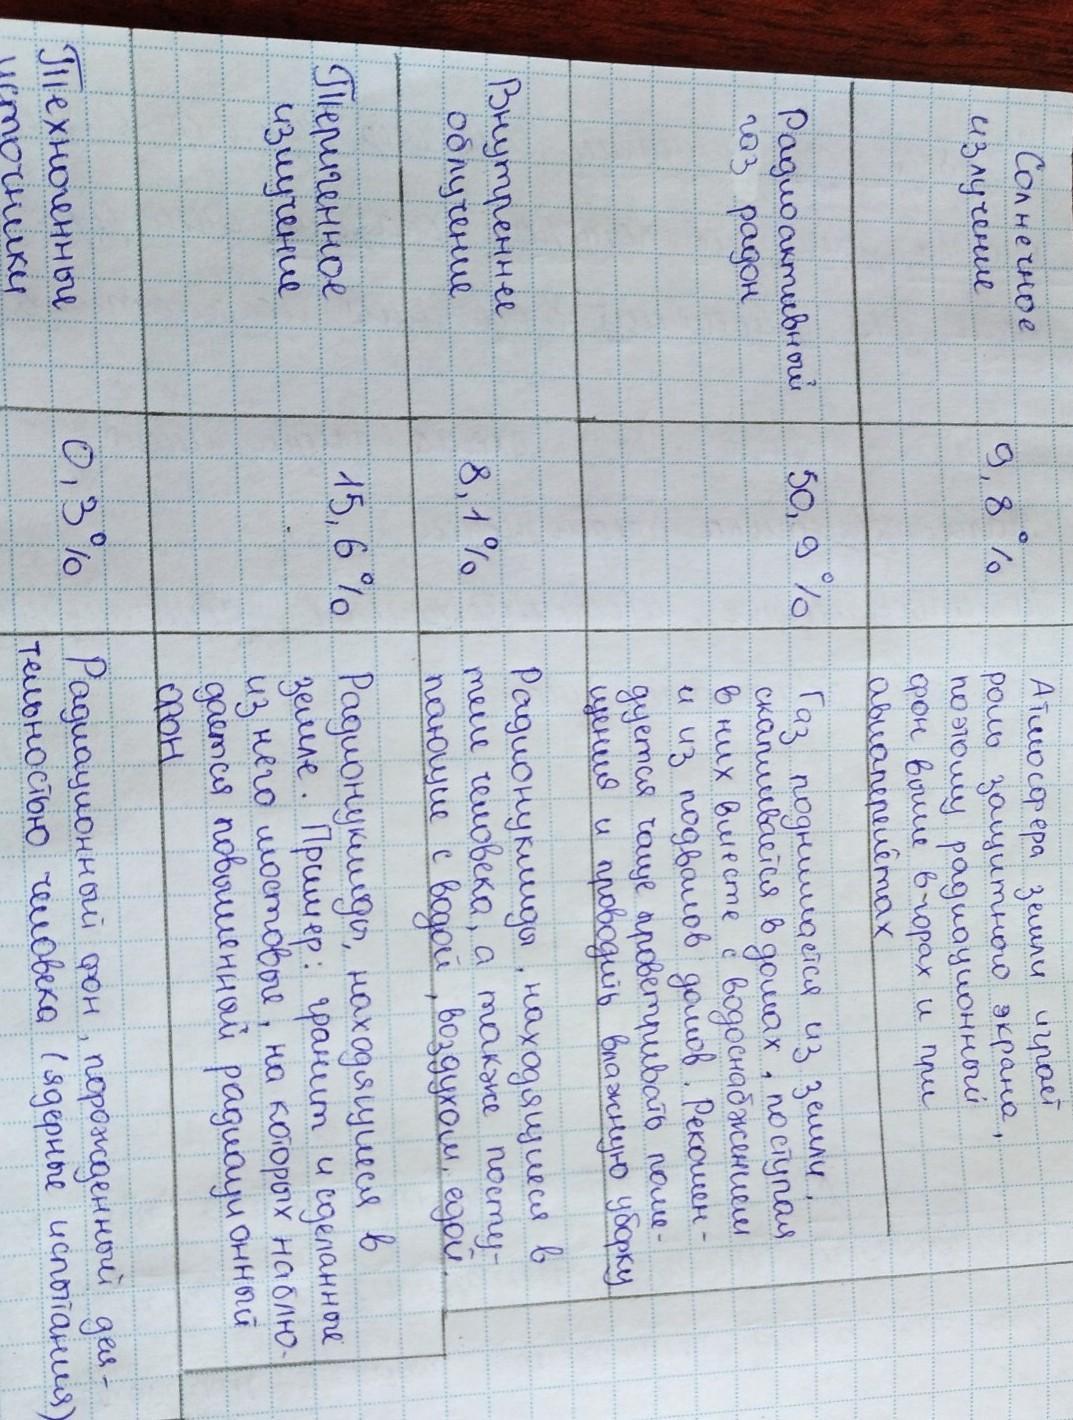 Солнечное
излучение
9,8%
Атмосфера земли играет
роль защитного экрана,
поэтому радиационный
фон выше в горах и при
авиаперелётах
Радиоактивный
газ радон
50,9%
Газ поднимается из земли,
скапливается в домах, поступая
в них вместе с водоснабжением
и из подвалов домов. Рекомен-
дуется чаще проветривать поме-
щения и проводить влажную уборку
Внутреннее
облучение
8,1%
Радионуклиды, находящиеся в
теле человека, а также посту-
пающие с водой, воздухом, едой.
Терригенное
излучение
15,6%
Радионуклиды, находящиеся в
земле. Пример: гранит и сделанные
из него мостовые, на которых наблю-
дается повышенный радиационный
фон
Техногенные
источники
0,3%
Радиационный фон, порожденный дея-
тельностью человека (ядерные испытания)